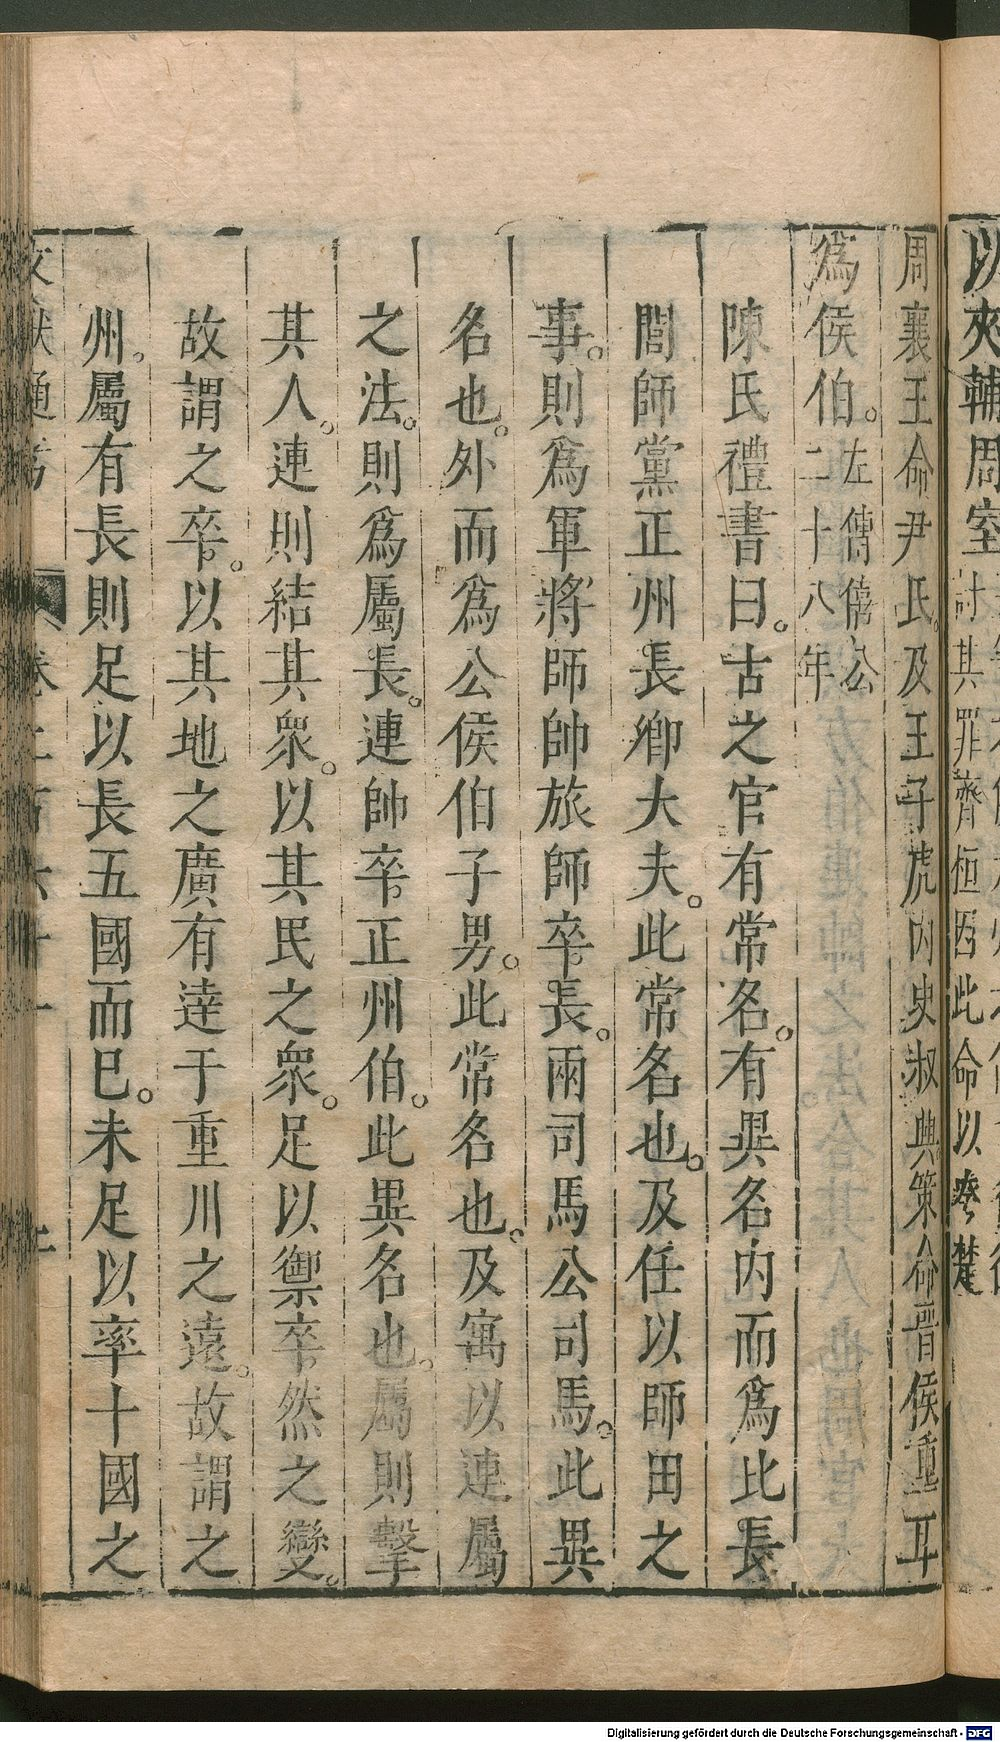 以夾輔周室
討其罪齊桓因此命以夸楚
周襄王命尹氏。及王子虎內史叔興策命晉侯重耳
爲侯伯。左傳僖公二十八年
陳氏禮書曰。古之官有常名。有異名內而爲比長
閭師黨正州長鄉大夫。此常名也。及任以師田之
事。則爲軍將師帥旅師卒長。兩司馬公司馬。此異
名也。外而爲公侯伯子男。此常名也。及寓以連屬
之法。則爲屬長。連帥卒正州伯。此異名也。屬則擊
其人。連則結其衆。以其民之衆。足以禦卒然之變。
故謂之卒。以其地之廣有逹于重川之遠。故謂之
州。屬有長則足以長五國而巳。未足以率十國之
文獻通考 卷二百六十一
Digitalisierung gefördert durch die Deutsche Forschungsgemeinschaft - DFG